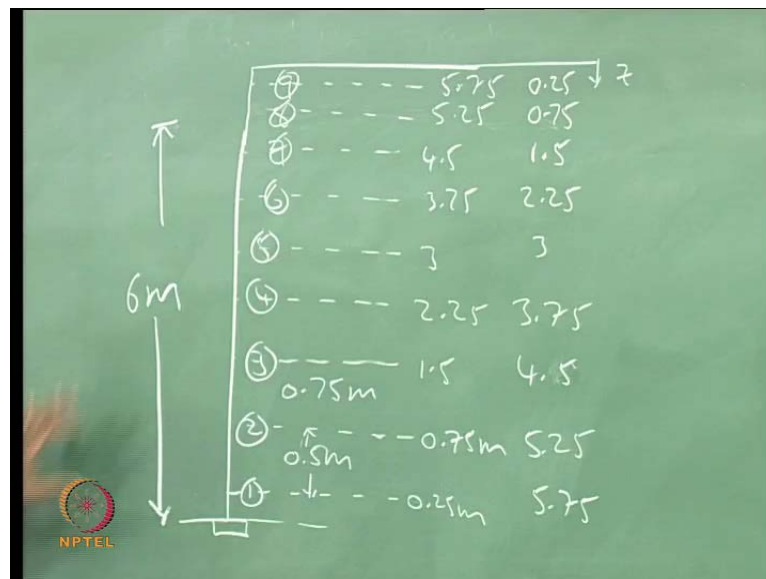 ⑨ - - - - 5.75 0.25 z
⑧ - - - - 5.25 0.75
⑦ - - - 4.5 1.5
⑥ - - - 3.75 2.25
⑤ - - - - 3 3
6m
④ - - - - 2.25 3.75
③ - - - - 1.5 4.5
0.75m
② - - - - 0.75m 5.25
0.5m
① - - - - 0.25m 5.75
NPTEL